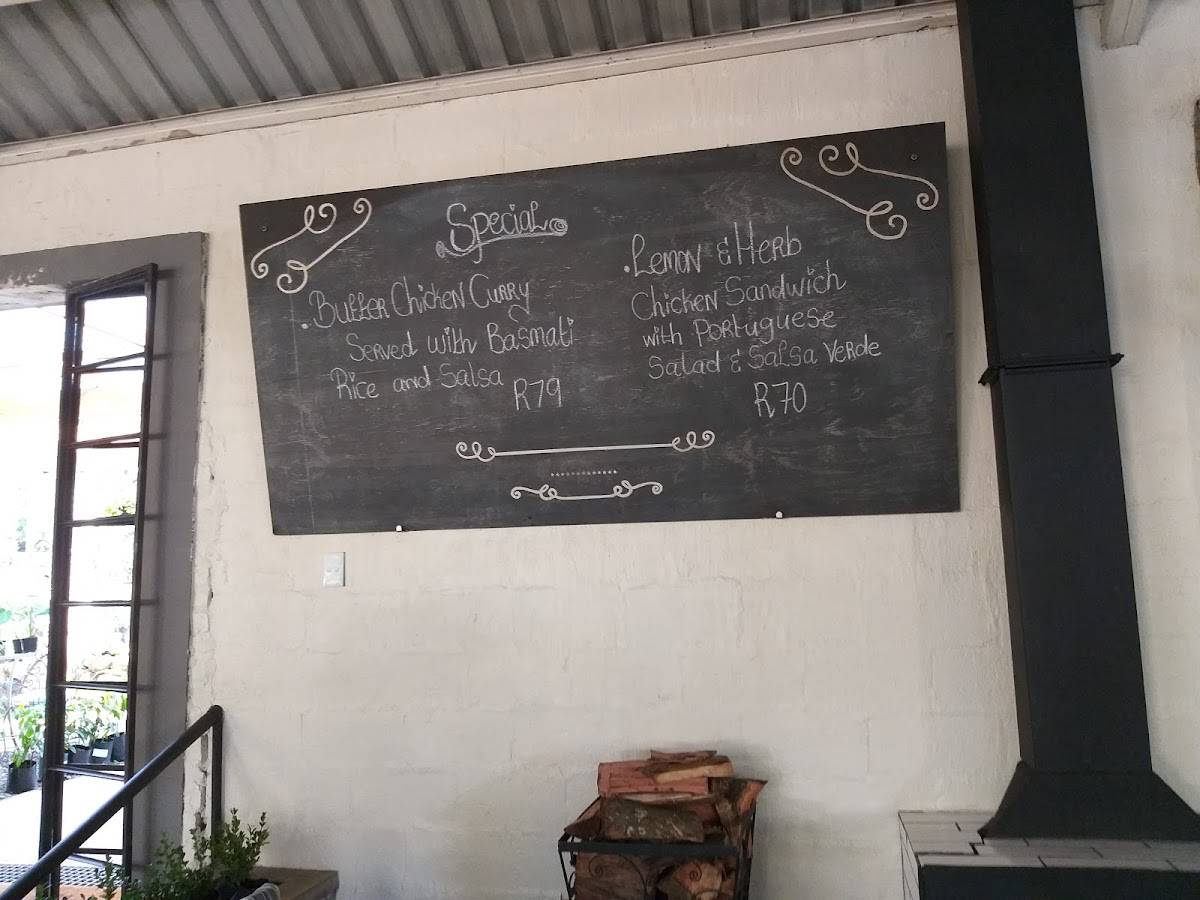 Special
• Butter Chicken Curry
Served with Basmati
Rice and Salsa
R79
• Lemon & Herb
Chicken Sandwich
with Portuguese
Salad & Salsa Verde
R70